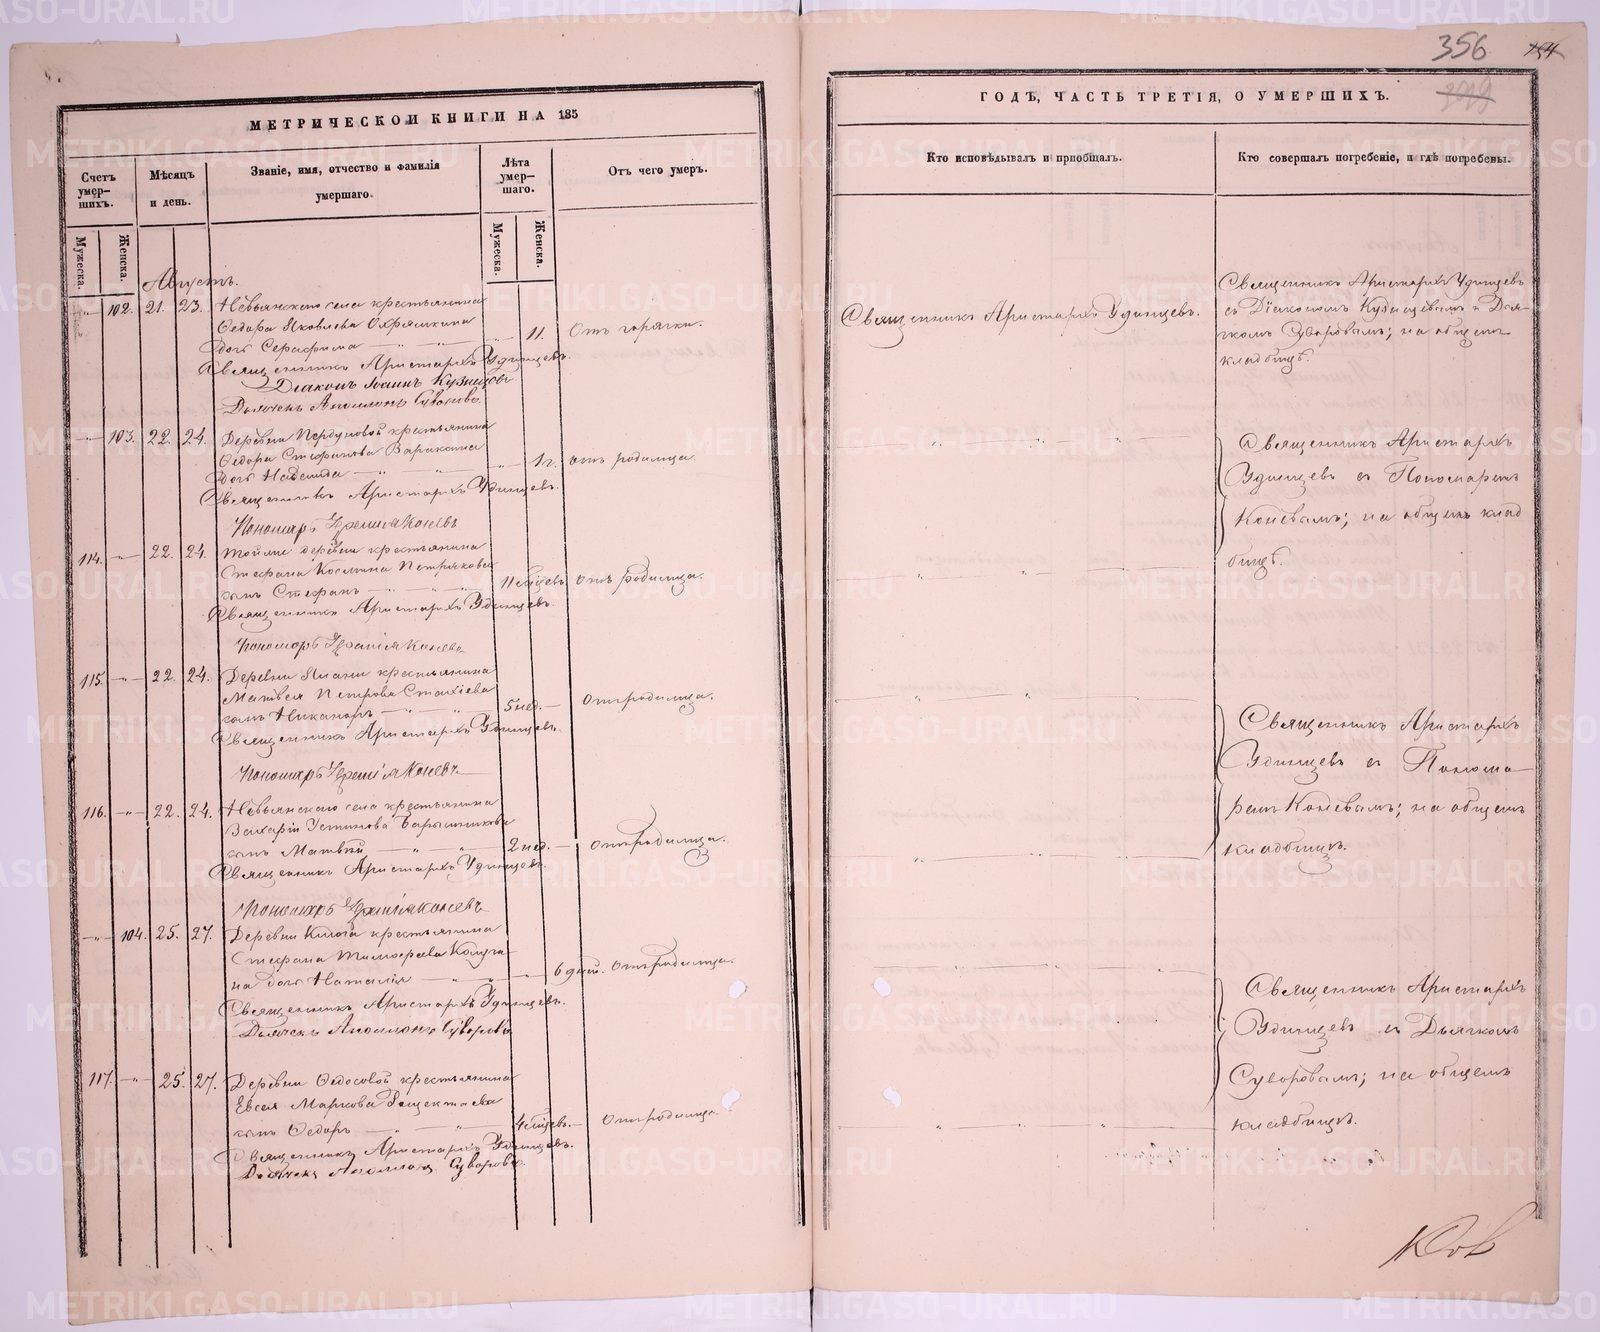 356
МЕТРИЧЕСКОЙ КНИГИ НА 185
ГОДЪ, ЧАСТЬ ТРЕТІЯ, О УМЕРШИХЪ.
Счетъ умер-шихъ.
Мужеска.
Женска.
Мѣсяцъ и день.
Званіе, имя, отчество и фамилія умершаго.
Лѣта умер-шаго.
Мужеска.
Женска.
Отъ чего умеръ.
Кто исповѣдывалъ и пріобщалъ.
Кто совершалъ погребеніе, и гдѣ погребены.
Августъ.
102. 21. 23. Невьянскаго села крестьянина
Ѳедора Яковлева Охряткина
дочь Серафима 11. Отъ горячки.
Священникъ Аристархъ Удинцевъ.
Діаконъ Іоаннъ Кузнецовъ
Дьячекъ Аполлонъ Суворовъ.
Священникъ Аристархъ Удинцевъ.
Священникъ Аристархъ Удинцевъ
съ Діакономъ Кузнецовымъ и Дья-
чкомъ Суворовымъ; на общемъ
кладбищѣ.
103. 22. 24. Деревни крестьянина
Ѳедора Стефанова Варакина
дочь Надежда 1 г. отъ родимца.
Священникъ Аристархъ Удинцевъ.
Пономарь Іеремія Коневъ
114. 22. 24. Тойже деревни крестьянина
Стефана Косьмина Петрякова
сынъ Стефанъ 11 мѣсцевъ отъ родимца.
Священникъ Аристархъ Удинцевъ.
Пономарь Іеремія Коневъ
Священникъ Аристархъ
Удинцевъ съ Пономаремъ
Коневымъ; на общемъ клад
бищѣ.
115. 22. 24. Деревни крестьянина
Матвея Петрова Стахіева
сынъ Никаноръ 5 нед. отъ родимца.
Священникъ Аристархъ Удинцевъ.
Пономарь Іеремія Коневъ
116. 22. 24. Невьянскаго села крестьянина
Захарія Устинова Барышникова
сынъ Матвѣй 2 нед. отъ родимца.
Священникъ Аристархъ Удинцевъ.
Пономарь Іеремія Коневъ
Священникъ Аристархъ
Удинцевъ съ Понома
ремъ Коневымъ; на общемъ
кладбищѣ.
104. 25. 27. Деревни Ключа крестьянина
Стефана Тимофеева
на дочь Наталія 6 дней. Отъ родимца.
Священникъ Аристархъ Удинцевъ.
Дьячекъ Аполлонъ Суворовъ.
117. 25. 27. Деревни Ѳедосовой крестьянина
Евсея Маркова
сынъ Ѳедоръ 4 мѣсцев. отъ родимца.
Священникъ Аристархъ Удинцевъ.
Дьячекъ Аполлонъ Суворовъ.
Священникъ Аристархъ
Удинцевъ съ Дьячкомъ
Суворовымъ; на общемъ
кладбищѣ.
METRIKI.GASO-URAL.RU